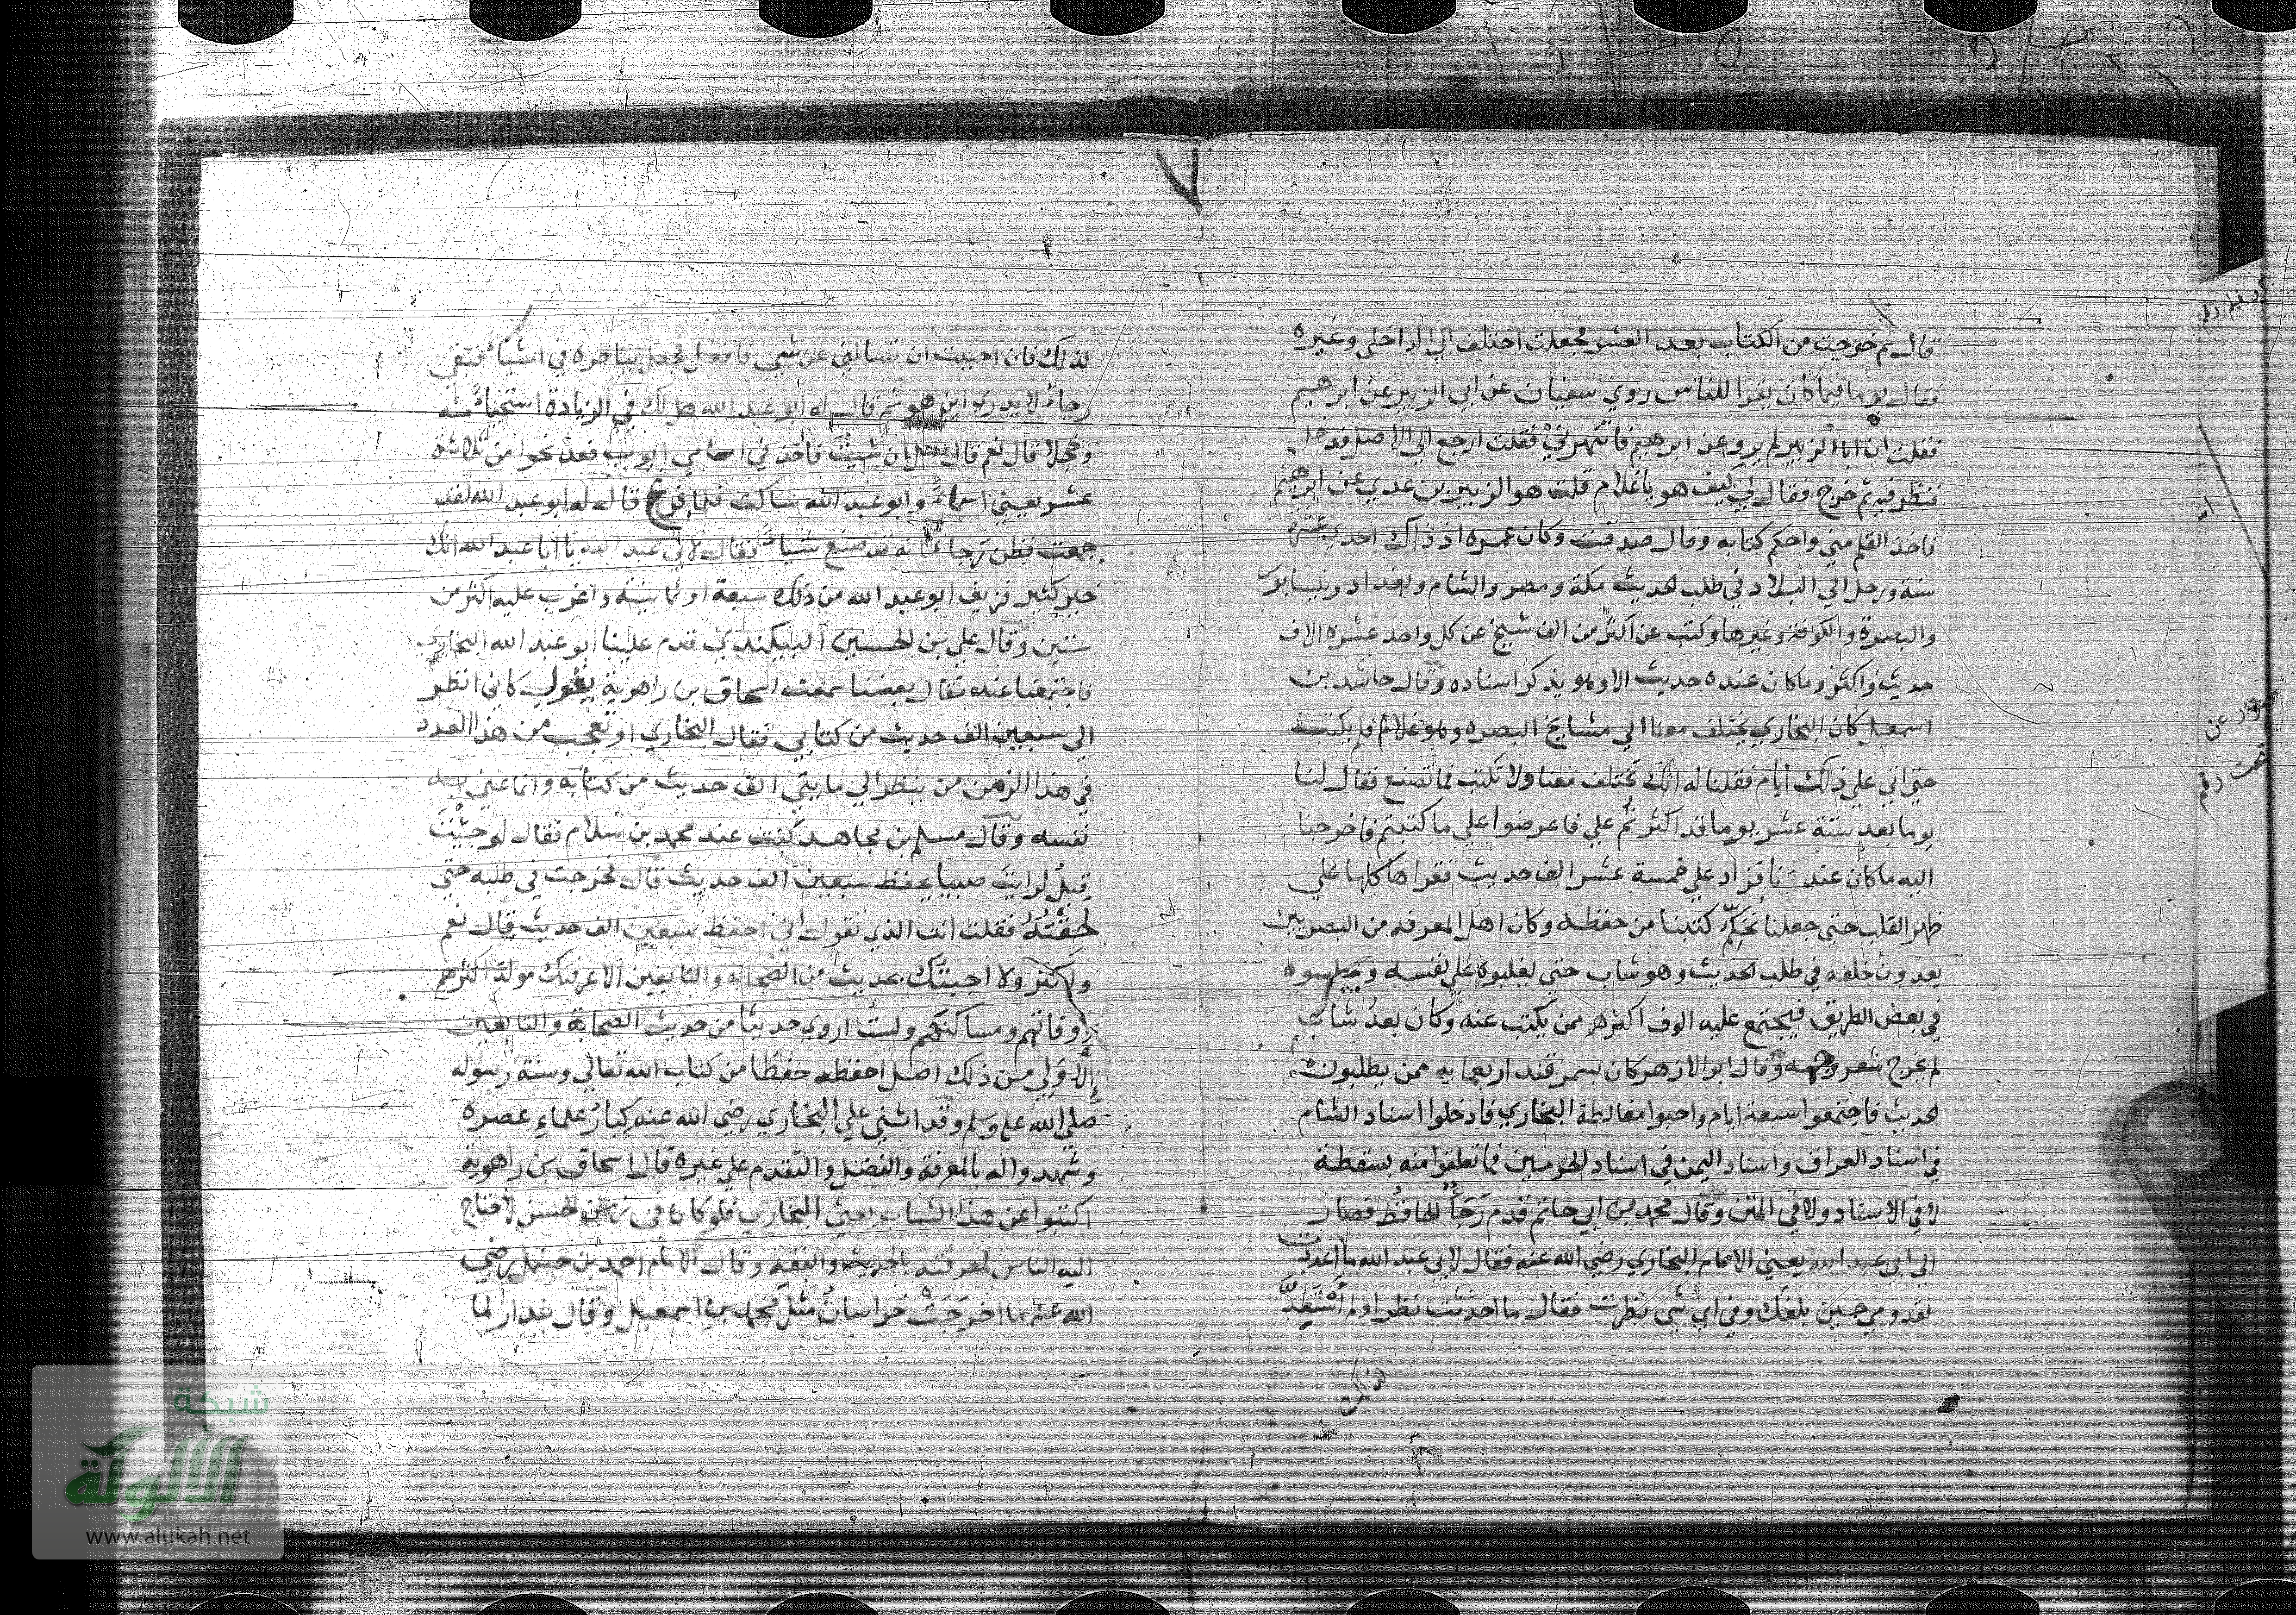 قال ثم خرجت من الكتاب بعد العشر فجعلت اختلف الي الداخلي وغيره
فقال يوما فيما كان يقرا للناس روي سفيان عن ابي الزبير عن ابرهيم
فقلت ان ابا الزبير لم يرو عن ابرهيم فانتهرني فقلت ارجع الي الاصل فدخل
فنظر فيه ثم خرج فقال لي كيف هو يا غلام قلت هو الزبير بن عدي عن ابرهيم
فاخذ القلم مني واحكم كتابه وقال صدقت وكان عمره اذ ذاك احدي عشره
سنة ورحل الي البلاد في طلب الحديث مكة ومصر والشام وبغداد ونيسابور
والبصرة والكوفة وغيرها وكتب عن اكثر من الف شيخ عن كل واحد عشرة الاف
حديث واكثر وما كان عنده حديث الا وهو يذكر اسناده وقال حاشد بن
اسمعيل كان البخاري يختلف معنا الي مشايخ البصره وهو غلام فلم يكتب
حتي اتي علي ذلك ايام فقلنا له انك تختلف معنا ولا تكتب فما تصنع فقال لنا
يوما بعد ستة عشر يوما قد اكثرتم علي فاعرضوا علي ما كتبتم فاخرجنا
اليه ما كان عندنا فزاد علي خمسة عشر الف حديث فقراها كلها علي
ظهر القلب حتي جعلنا نحكم كتبنا من حفظه وكان اهل المعرفه من البصريين
يعدون خلفه في طلب الحديث وهو شاب حتي يغلبوه علي نفسه ويجلسوه
في بعض الطريق فيجتمع عليه الوف اكثرهم ممن يكتب عنه وكان بعد شاب
لم يخرج شعر وجهه وقال ابو الازهر كان بسمرقند اربعمايه ممن يطلبون
الحديث فاجتمعوا سبعة ايام واحبوا مغالطة البخاري فادخلوا اسناد الشام
في اسناد العراق واسناد اليمن في اسناد الحرمين فما تعلقوا منه بسقطة
لا في الاسناد ولا في المتن وقال محمد بن ابي حاتم قدم رجاء الحافظ فصار
الي ابي عبد الله يعني الامام البخاري رضي الله عنه فقال لابي عبد الله ما اعددت
لقدومي حين بلغك وفي اي شي نظرت فقال ما احدثت نظرا ولم استعد
لذلك
لذلك فان احببت ان تسالني عن شي فافعل فجعل يناظره في اشياء فبقي
رجاء لا يدري اين هو ثم قال له ابو عبد الله هل لك في الزيادة استحياء منه
وخجلا قال نعم قال ان شيت فاخذ في اسامي ايوب فعد نحوا من ثلاثة
عشر يعني اسماء وابو عبد الله ساكت فلما فرغ قال له ابو عبد الله لقد
جمعت فظن رجاء انه قد صنع شيا فقال لابي عبد الله يا ابا عبد الله انك
خير كثير فزيف ابو عبد الله من ذلك سبعة او ثمانية واغرب عليه اكثر من
ستين وقال علي بن الحسين البيكندي قدم علينا ابو عبد الله البخاري
فاجتمعنا عنده فقال بعضنا سمعت اسحاق بن راهوية يقول كاني انظر
الي سبعين الف حديث من كتابي فقال البخاري او تعجب من هذا العدد
في هذا الزمن من ينظر الي مايتي الف حديث من كتابه وانما عني به
نفسه وقال مسلم بن مجاهد كنت عند محمد بن سلام فقال لو جئت
قبل لرايت صبيا يحفظ سبعين الف حديث قال فخرجت في طلبه حتي
لحقته فقلت انت الذي تقول اني احفظ سبعين الف حديث قال نعم
واكثر ولا اجيئك بحديث من الصحابه والتابعين الا عرفتك مولد اكثرهم
ووفاتهم ومساكنهم ولست اروي حديثا من حديث الصحابة والتابعين
الا ولي من ذلك اصل احفظه حفظا من كتاب الله تعالي وسنة رسوله
صلي الله عليه وسلم وقد اثني علي البخاري رضي الله عنه كبار علماء عصره
وشهدوا له بالمعرفة والفضل والتقدم علي غيره قال اسحاق بن راهوية
اكتبوا عن هذا الشاب يعني البخاري فلو كان في زمن الحسن لاحتاج
اليه الناس لمعرفته بالحديث والفقه وقال الامام احمد بن حنبل رضي
الله عنه ما اخرجت خراسان مثل محمد بن اسمعيل وقال بندار لما
شبكة
الألوكة
www.alukah.net